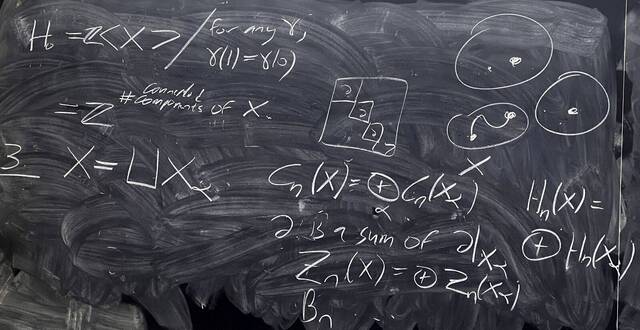 H₀ = ℤ<X> / for any γ,
γ(1) = γ(0)
= ℤ # connected components of X.
∂
∂
∂
3 X = ⊔ X_α
X
C_n(X) = ⊕_α C_n(X_α)
∂ is a sum of ∂|_{X_α}
Z_n(X) = ⊕ Z_n(X_α)
B_n ...
H_n(X) =
⊕ H_n(X_α)